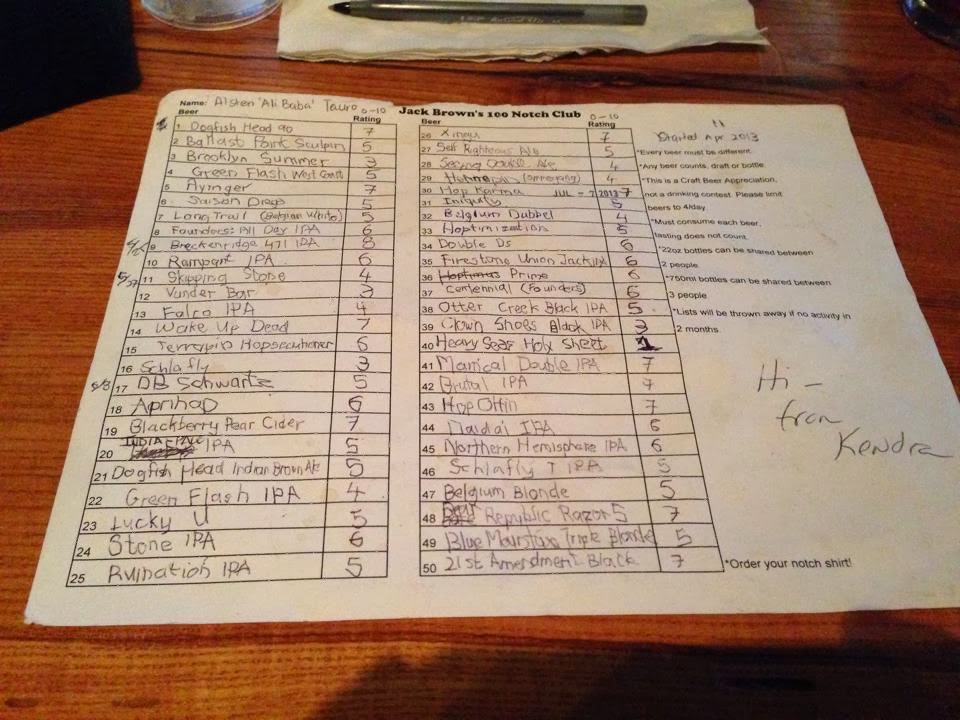 Name: Alsten 'Ali Baba' Tauro
Jack Brown's 100 Notch Club
Beer 0-10 Rating
1 Dogfish Head 90 7
2 Ballast Point Sculpin 5
3 Brooklyn Summer 3
4 Green Flash West Coast 5
5 Ayinger 7
6 Saison Diego 5
7 Long Trail (Belgian White) 5
8 Founders: All Day IPA 6
9 Breckenridge 471 IPA 8
10 Rampant IPA 6
11 Skipping Stone 4
12 Vunder Bar 3
13 Falco IPA 4
14 Wake Up Dead 7
15 Terrapin Hopsecutioner 6
16 Schlafly 3
5/8 17 DB Schwartz 5
18 Aprihop 6
19 Blackberry Pear Cider 7
20 INDIA PALE IPA 5
21 Dogfish Head Indian Brown Ale 5
22 Green Flash IPA 4
23 Lucky U 5
24 Stone IPA 6
25 Ruination IPA 5
Beer 0-10 Rating
26 Xingu 7
27 Self Righteous Ale 5
28 Double Ale 4
29 4
30 Hop Karma JUL - 7 2013 7
31 Iniquity 5
32 Belgium Dubbel 4
33 Hoptimization 5
34 Double Ds 6
35 Firestone Union Jack IPA 6
36 Hoptimus Prime 6
37 Centennial (Founders) 6
38 Otter Creek Black IPA 5
39 Clown Shoes Black IPA 3
40 Heavy Seas Holy Sheet 1
41 Manical Double IPA 7
42 Brutal IPA 7
43 Hop Ottin 7
44 IPA 6
45 Northern Hemisphere IPA 6
46 Schlafly T IPA 5
47 Belgium Blonde 5
48 Republic Razor 5 7
49 Blue Mountain Triple Blonde 5
50 21st Amendment Black 7
Started Apr 2013
*Every beer must be different.
*Any beer counts, draft or bottle.
*This is a Craft Beer Appreciation,
not a drinking contest. Please limit
beers to 4/day.
*Must consume each beer,
tasting does not count.
*22oz bottles can be shared between
2 people
*750ml bottles can be shared between
3 people
*Lists will be thrown away if no activity in
2 months.
Hi -
from
Kendra
*Order your notch shirt!